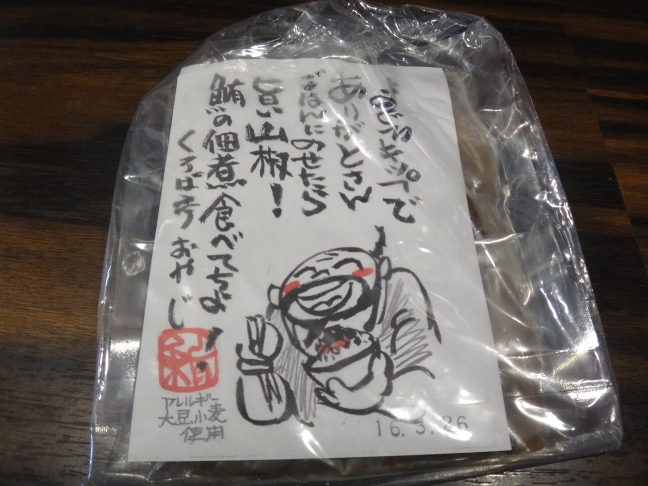 ありがとさん
ごはんにのせたら
旨い山椒!
鮪の佃煮食べてちょ!
くろば亭おやじ
アレルギー
大豆小麦
使用
16.3.26